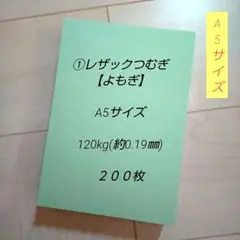 ①レザックつむぎ
【よもぎ】
A5サイズ
120kg(約0.19㎜)
２００枚
A5サイズ